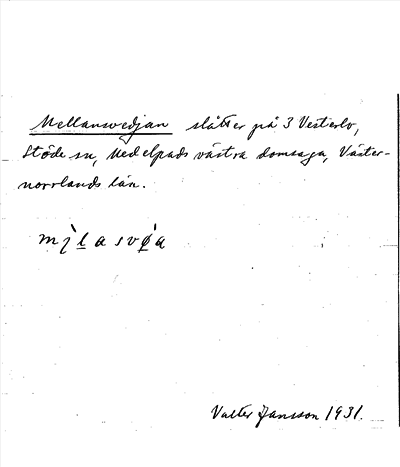 Mellansvedjan slåtter på 3 Vesterlo,
Stöde sn, Medelpads västra domsaga, Väster-
norrlands län.
Valter Jansson 1931.